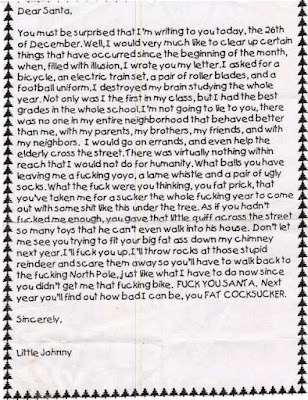 Dear Santa,
You must be surprised that I'm writing to you today, the 26th
of December. Well, I would very much like to clear up certain
things that have occurred since the beginning of the month,
when, filled with illusion, I wrote you my letter. I asked for a
bicycle, an electric train set, a pair of roller blades, and a
football uniform. I destroyed my brain studying the whole
year. Not only was I the first in my class, but I had the best
grades in the whole school. I'm not going to lie to you, there
was no one in my entire neighborhood that behaved better
than me, with my parents, my brothers, my friends, and with
my neighbors. I would go on errands, and even help the
elderly cross the street. There was virtually nothing within
reach that I would not do for humanity. What balls you have
leaving me a fucking yoyo, a lame whistle and a pair of ugly
socks. What the fuck were you thinking, you fat prick, that
you've taken me for a sucker the whole fucking year to come
out with some shit like this under the tree. As if you hadn't
fucked me enough, you gave that little quff across the street
so many toys that he can't even walk into his house. Don't let
me see you trying to fit your big fat ass down my chimney
next year. I'll fuck you up. I'll throw rocks at those stupid
reindeer and scare them away so you'll have to walk back to
the fucking North Pole, just like what I have to do now since
you didn't get me that fucking bike. FUCK YOU SANTA. Next
year you'll find out how bad I can be, you FAT COCKSUCKER.
Sincerely,
Little Johnny